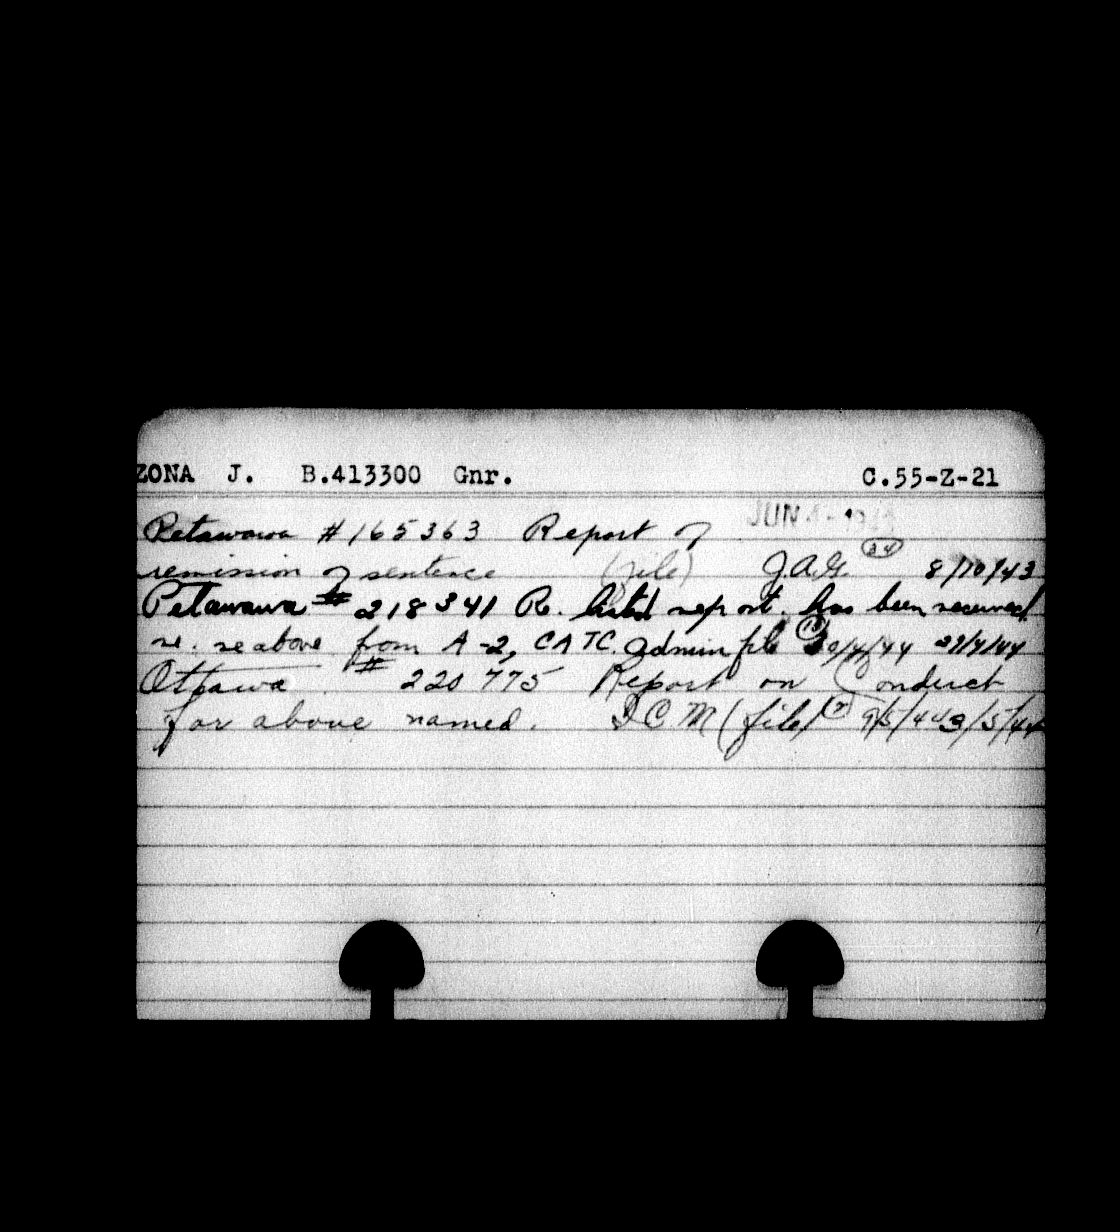 ZONA J. B.413300 Gnr. C.55-Z-21
Petawawa #165363 Report of JUN
remission of sentence (file) J.A.G. 34 8/10/43
Petawawa # 218341 R. report. has been received
re. above from A-2, CATC. admin file /44 29/4/44
Ottawa # 220775 Report on Conduct
for above named. (file) 9/5/44 3/5/44